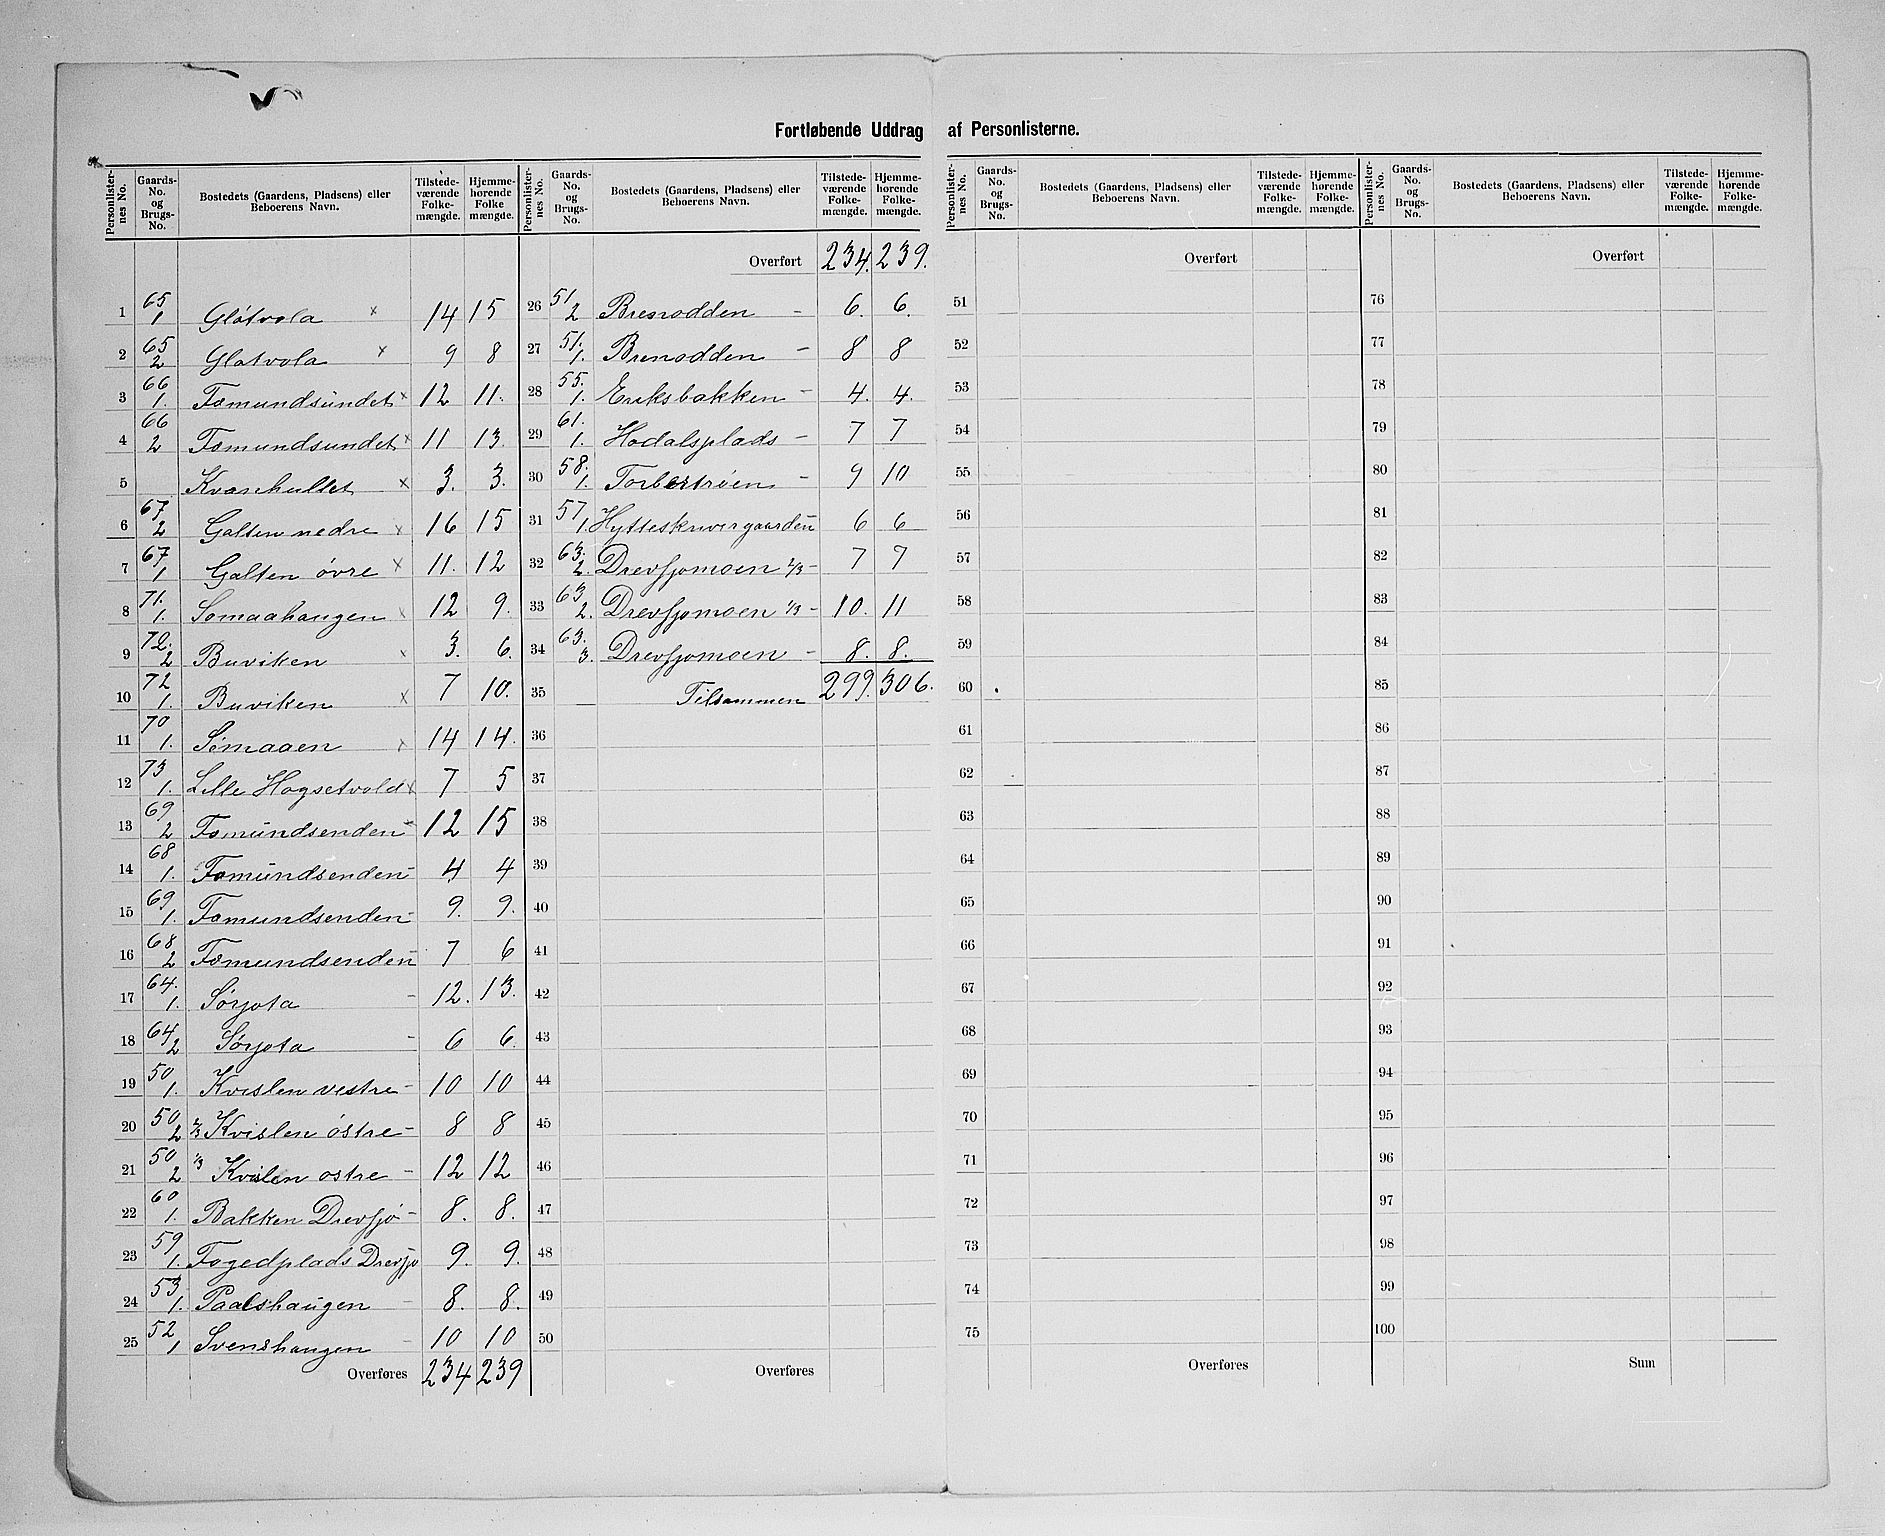 Fortløbende Uddrag af Personlisterne.
Personlister-nes No. Gaards-No. og Brugs-No. Bostedets (Gaardens, Pladsens) eller Beboerens Navn. Tilstede-værende Folke-mængde. Hjemme-hørende Folke mængde.
1 65/1 Glötvola x 14 15
2 65/2 Glotvola x 9 8
3 66/1. Fæmundsundet x 12 11.
4 66/2 Fæmundsundet x 11 13.
5 Kvænhullet x 3. 3.
6 67/2 Galten nedre x 16 15
7 67/1 Galten øvre x 11. 12
8 71./1. Somaahaugen x 12 9.
9 72./2 Buviken x 3. 6.
10 72/1. Buviken x 7 10.
11 70/1. Sömaaen x 14 14.
12 73/1. Lille Hogsetvold x 7 5
13 69/2 Fæmundsenden - 12 15
14 68/1. Fæmundsenden - 4 4
15 69/1. Fæmundsenden - 9. 9.
16 68/2 Fæmundsenden - 7 6
17 64./1. Sørjota - 12. 13.
18 64/2 Sørjota - 6 6.
19 50/1. Kvislen vestre - 10 10
20 50/2 2/3 Kvislen östre - 8 8
21 50/2 1/3 Kvislen ostre - 12 12
22 60/1. Bakken Drevsjö - 8. 8.
23 59/1. Fogedplads Drevsjo 9. 9.
24 53/1. Paalshaugen - 8. 8.
25 52/1 Svenshaugen - 10 10
Overføres 234 239
Personlister-nes No. Gaards-No. og Brugs-No. Bostedets (Gaardens, Pladsens) eller Beboerens Navn. Tilstede-værende Folke-mængde. Hjemme-hørende Folke-mængde.
Overført 234. 239.
26 51/2 Brenodden - 6. 6.
27 51./1. Brenodden - 8 8
28 55./1. Eriksbakken - 4. 4.
29 61./1. Hodalsplads - 7 7
30 58./1. Torbertröen - 9 10
31 57/1. Hytteskrivergaarden - 6 6
32 63./2. Drevsjomoen 2/3 - 7 7
33 63/2. Drevsjomoen 1/3 - 10. 11
34 63./3. Drevsjomoen - 8. 8.
35 Tilsammen 299. 306.
36
37
38
39
40
41
42
43
44
45
46
47
48
49
50
Overføres
Personlister-nes No. Gaards-No. og Brugs-No. Bostedets (Gaardens, Pladsens) eller Beboerens Navn. Tilstede-værende Folke-mængde. Hjemme-hørende Folke-mængde.
Overført
51
52
53
54
55
56
57
58
59
60
61
62
63
64
65
66
67
68
69
70
71
72
73
74
75
Overføres
Personlister-nes No. Gaards-No. og Brugs-No. Bostedets (Gaardens, Pladsens) eller Beboerens Navn. Tilstede-værende Folke-mængde. Hjemme-hørende Folke-mængde.
Overført
76
77
78
79
80
81
82
83
84
85
86
87
88
89
90
91
92
93
94
95
96
97
98
99
100
Sum